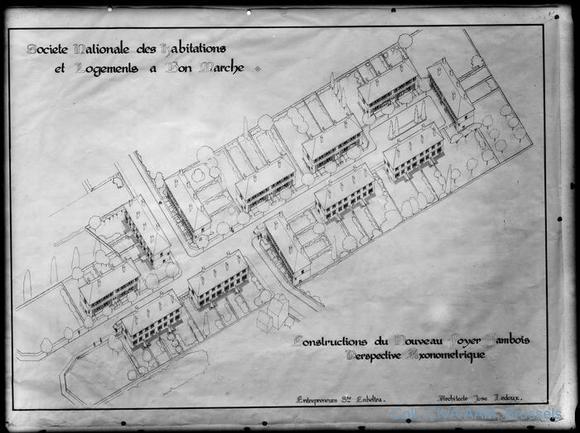 Societe Nationale des Habitations
et Logements a Bon Marche
Constructions du Nouveau Foyer Jambois
Perspective Axonometrique
Entrepreneurs
Architecte Jose Ledoux.
Brussels